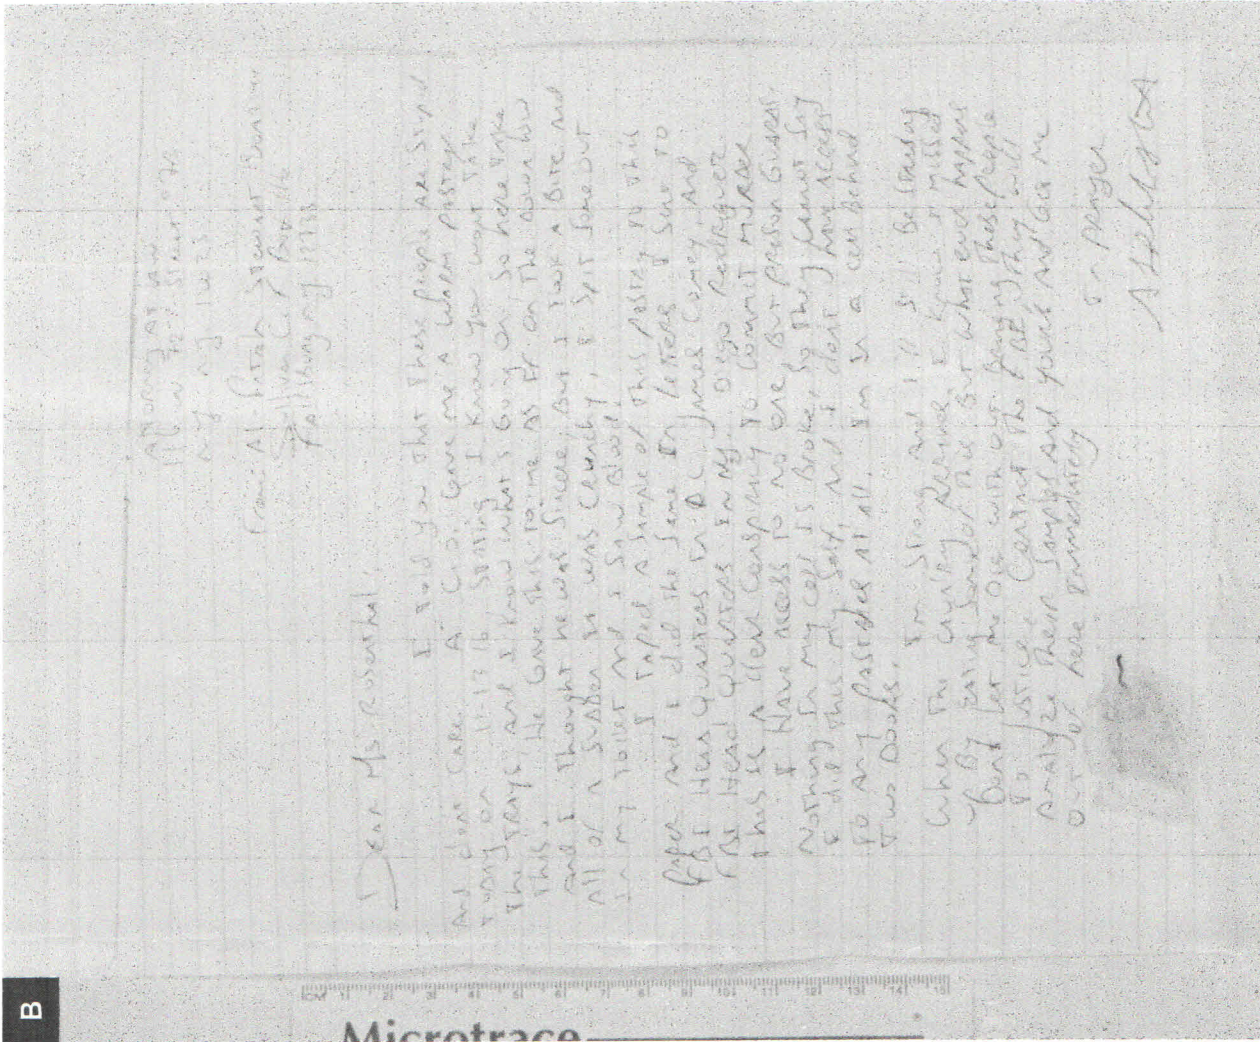 B
Microtrace
CM 1 2 3 4 5 6 7 8 9 10 11 12 13 14 15
Attorney at law
116 w 72nd Street
ny ny 10023
From: Al-Fattah Stewart
Sullivan C.F. Box 116
Fallsburg ny 12733
Dear Ms Rosenthal,
I told you that these people are stupid
And don't Care. A C.O. Gave me a pastry
today on 11-13-16 Stating I Know you won't Take
the TRAYS, and I Know what's Going on, So here Take
This. He Gave This to me as If on the Down low
and I Thought he was Sincere, But I Took a Bite and
All of a Sudden It was Crunchy, I Spit Some out
In my Toilet and I Saw Blood!
I Taped a Sample of This pastry to this
Paper and I did the Same In letters I Sent to
FBI Head Quarters In DC, James Comey, and
FBI Head Quarters In NY. Diego Rodriguez
This is a Clear Conspiracy To Commit MURDER
I Have access To no one, But prison Guards.
Nothing In my cell Is Broke, So They Cannot Say
I did This my Self, And I don't have access
To any Pastries At all. I'm In a Cell Behind
Two Doors.
I'm Strong And I'll Still Be Standing
When The Dust I Know I missed
up By eating Some of This. But what ever happens
Don't let me Die with out Bringing These people
To Justice. Contact The FBI, They will
analyze There Sample And yours And Get me
out of here Immediately
In prayer